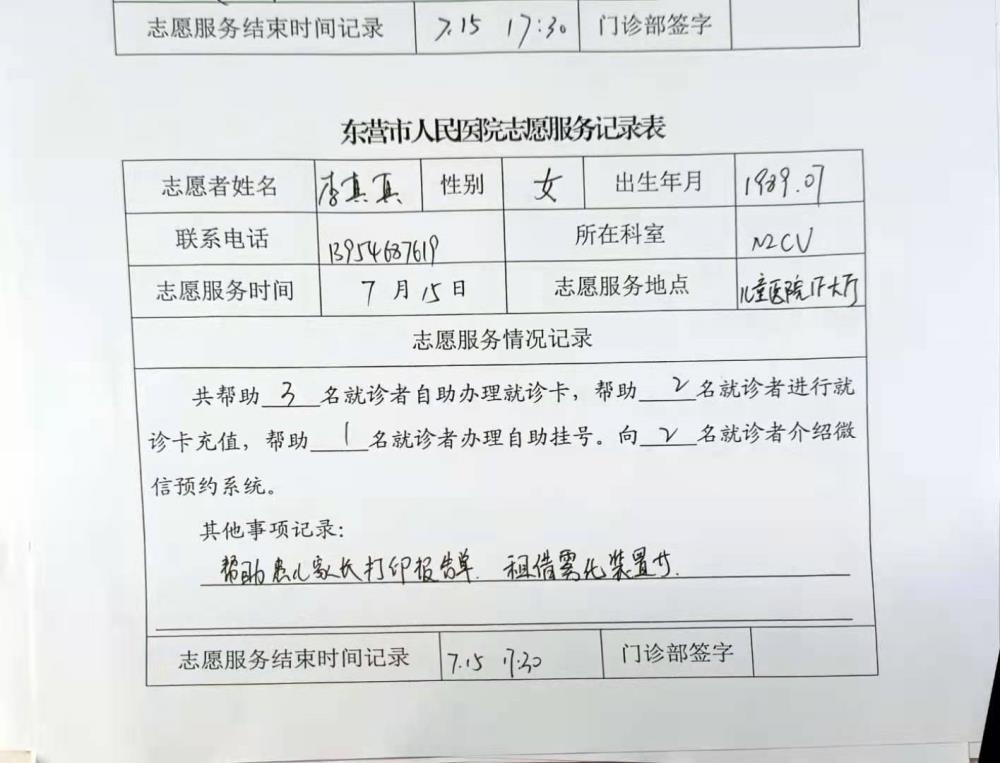 志愿服务结束时间记录 7.15 17:30 门诊部签字
东营市人民医院志愿服务记录表
志愿者姓名 李真真 性别 女 出生年月 1989.07
联系电话 13954687619 所在科室 NICU
志愿服务时间 7月15日 志愿服务地点 儿童医院1F大厅
志愿服务情况记录
共帮助3名就诊者自助办理就诊卡，帮助2名就诊者进行就
诊卡充值，帮助1名就诊者办理自助挂号。向2名就诊者介绍微
信预约系统。
其他事项记录：
帮助患儿家长打印报告单. 租借雾化装置
志愿服务结束时间记录 7.15 17:30 门诊部签字